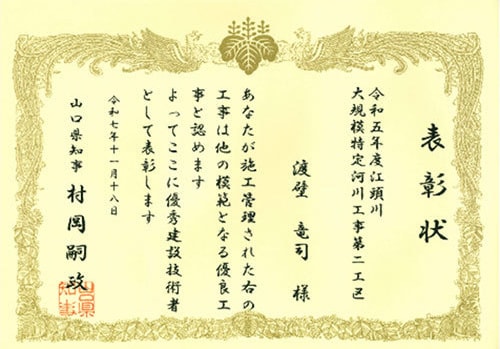 表彰状
令和五年度江頭川
大規模特定河川工事第二工区
渡壁 竜司 様
あなたが施工管理された右の
工事は他の模範となる優良工
事と認めます
よってここに優秀建設技術者
として表彰します
令和七年十一月十八日
山口県知事 村岡嗣政